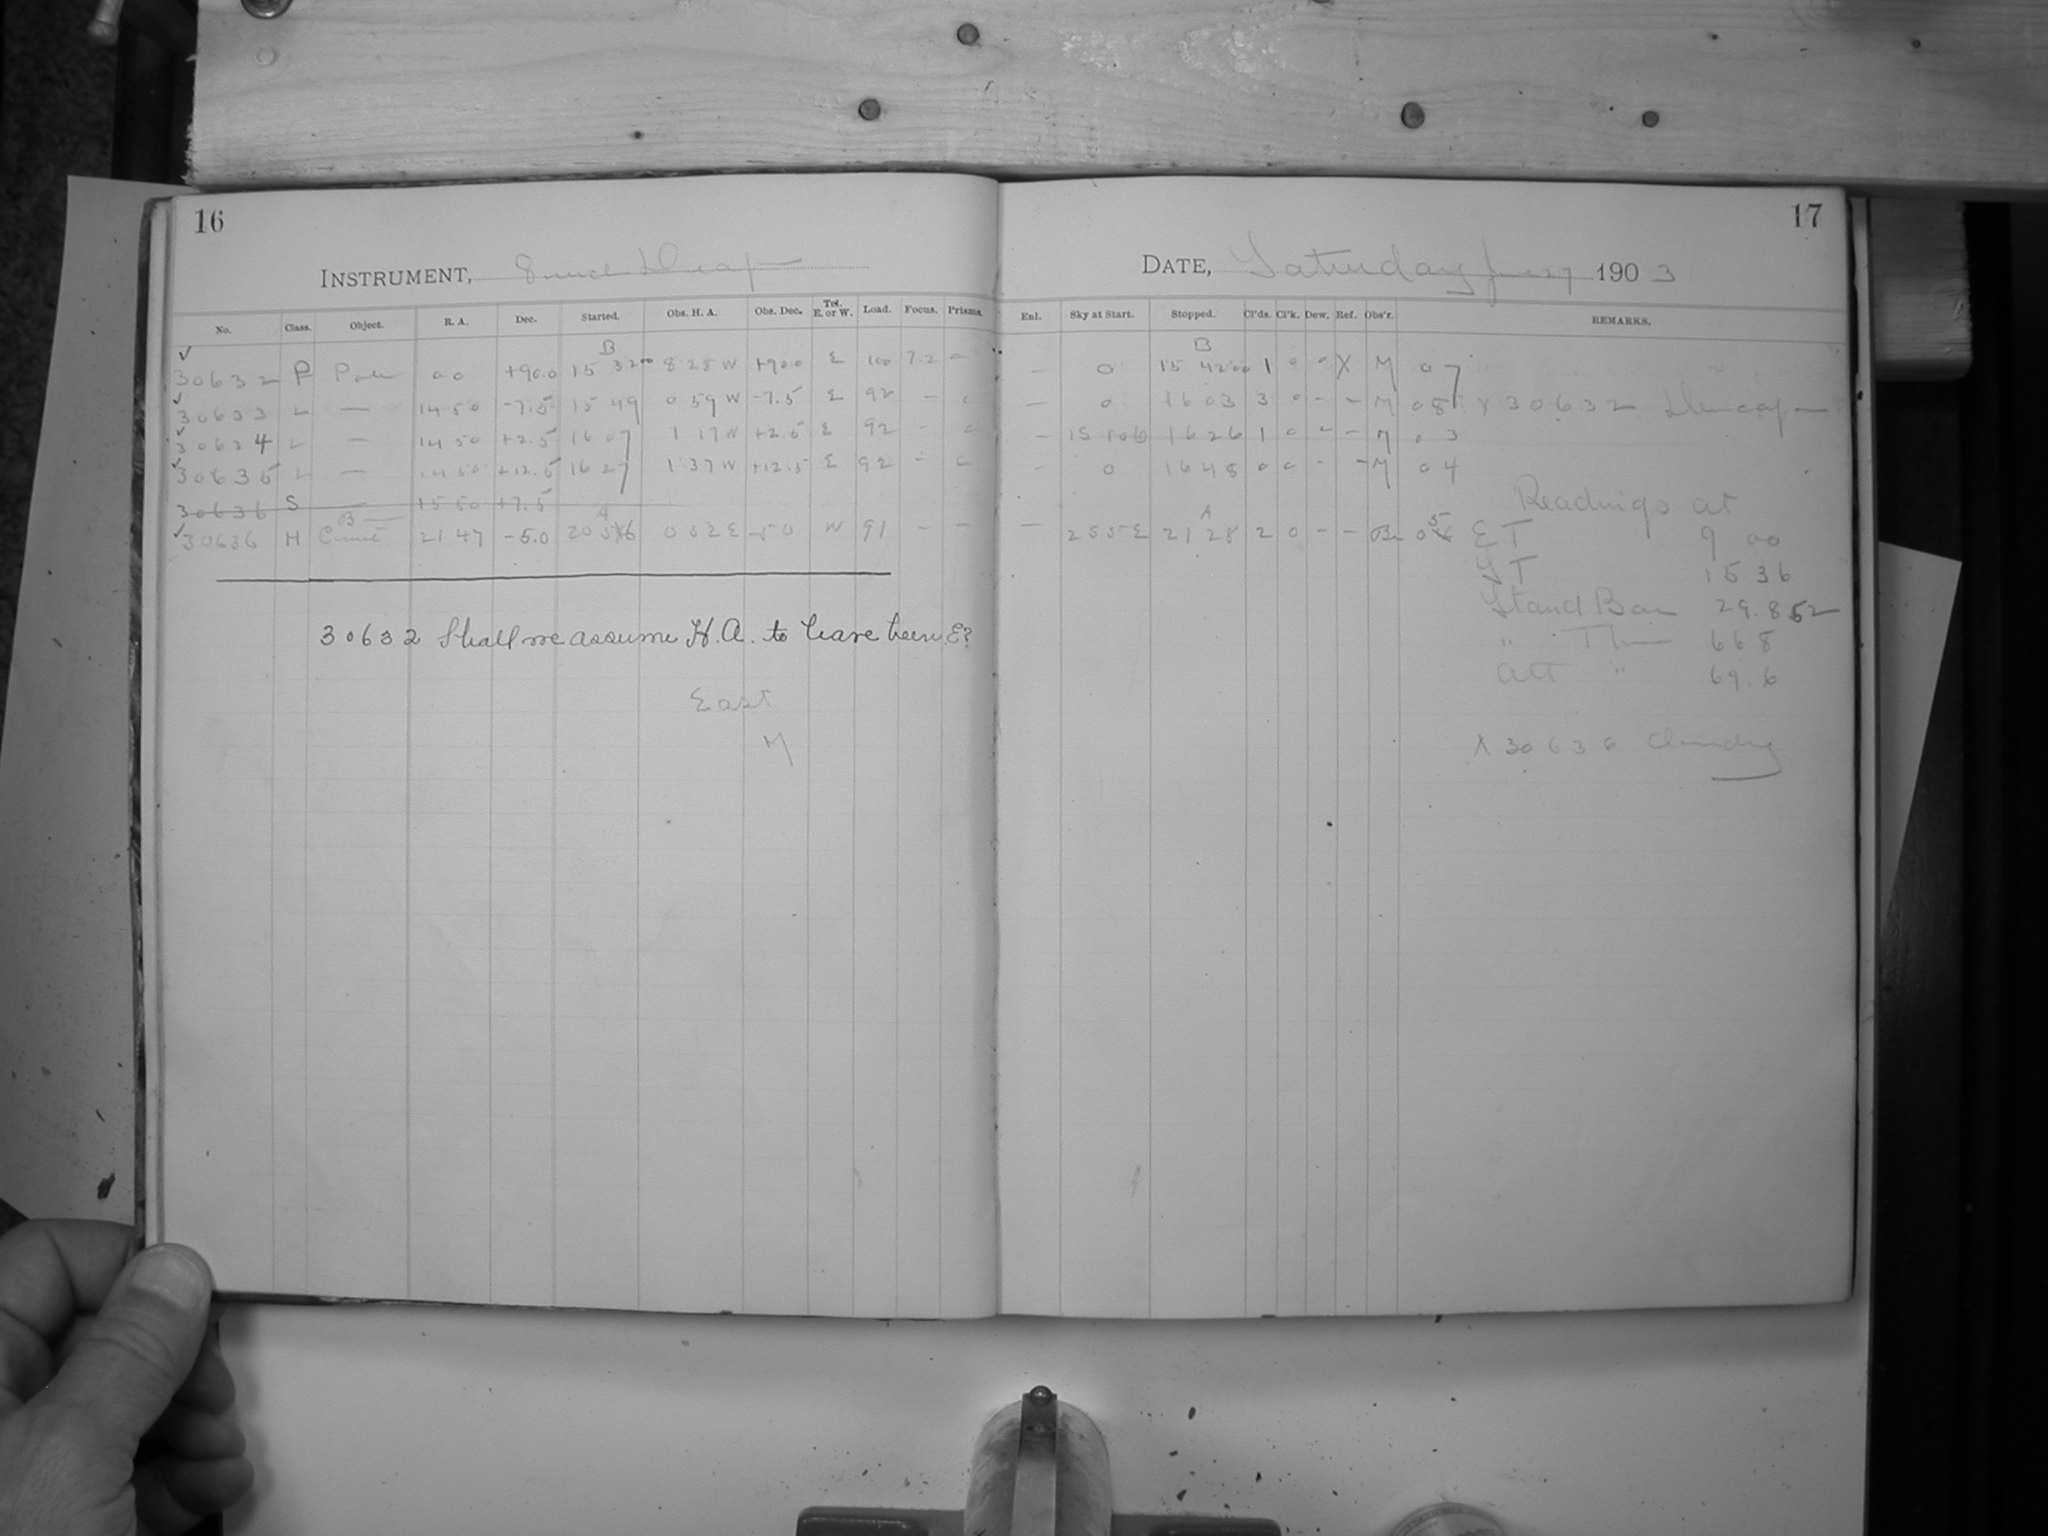 16
17
INSTRUMENT, 8 inch Draper
DATE, Saturday June 27 1903
No. Class. Object. R. A. Dec. Started. Obs. H. A. Obs. Dec. Tel. E. or W. Load. Focus. Prisms. Enl. Sky at Start. Stopped. Cl'ds. Cl'k. Dew. Ref. Obs'r. REMARKS.
B B
✓30632 P Pole 00 +90.0 15 32 00 8 28 W +90.0 E 100 7.2 0 — 0 15 42 00 1 0 0 X M 07
✓30633 L — 14 50 -7.5 15 49 0 59 W -7.5 E 92 — 0 — 0 16 03 3 0 — — M 05 X 30632
✓30634 L — 14 50 +2.5 16 07 1 17 W +2.5 E 92 — 0 — 16 26 1 0 — — M 03
✓30635 L — 14 50 +12.5 16 27 1 37 W +12.5 E 92 — — 0 16 48 0 0 — — M 04
30636 S — 15 50 +7.5
Readings at
A A
✓30636 H Comet 21 47 -5.0 20 56 0 52 E -5.0 W 91 — — — 2 55 E 21 28 2 0 — — 05
E T 9 00
S T 15 36
Stand Bar 29.852
" Ther 66 8
Att " 69.6
30632 Shall we assume H.A. to have been E?
East
M
X 30636 Cloudy